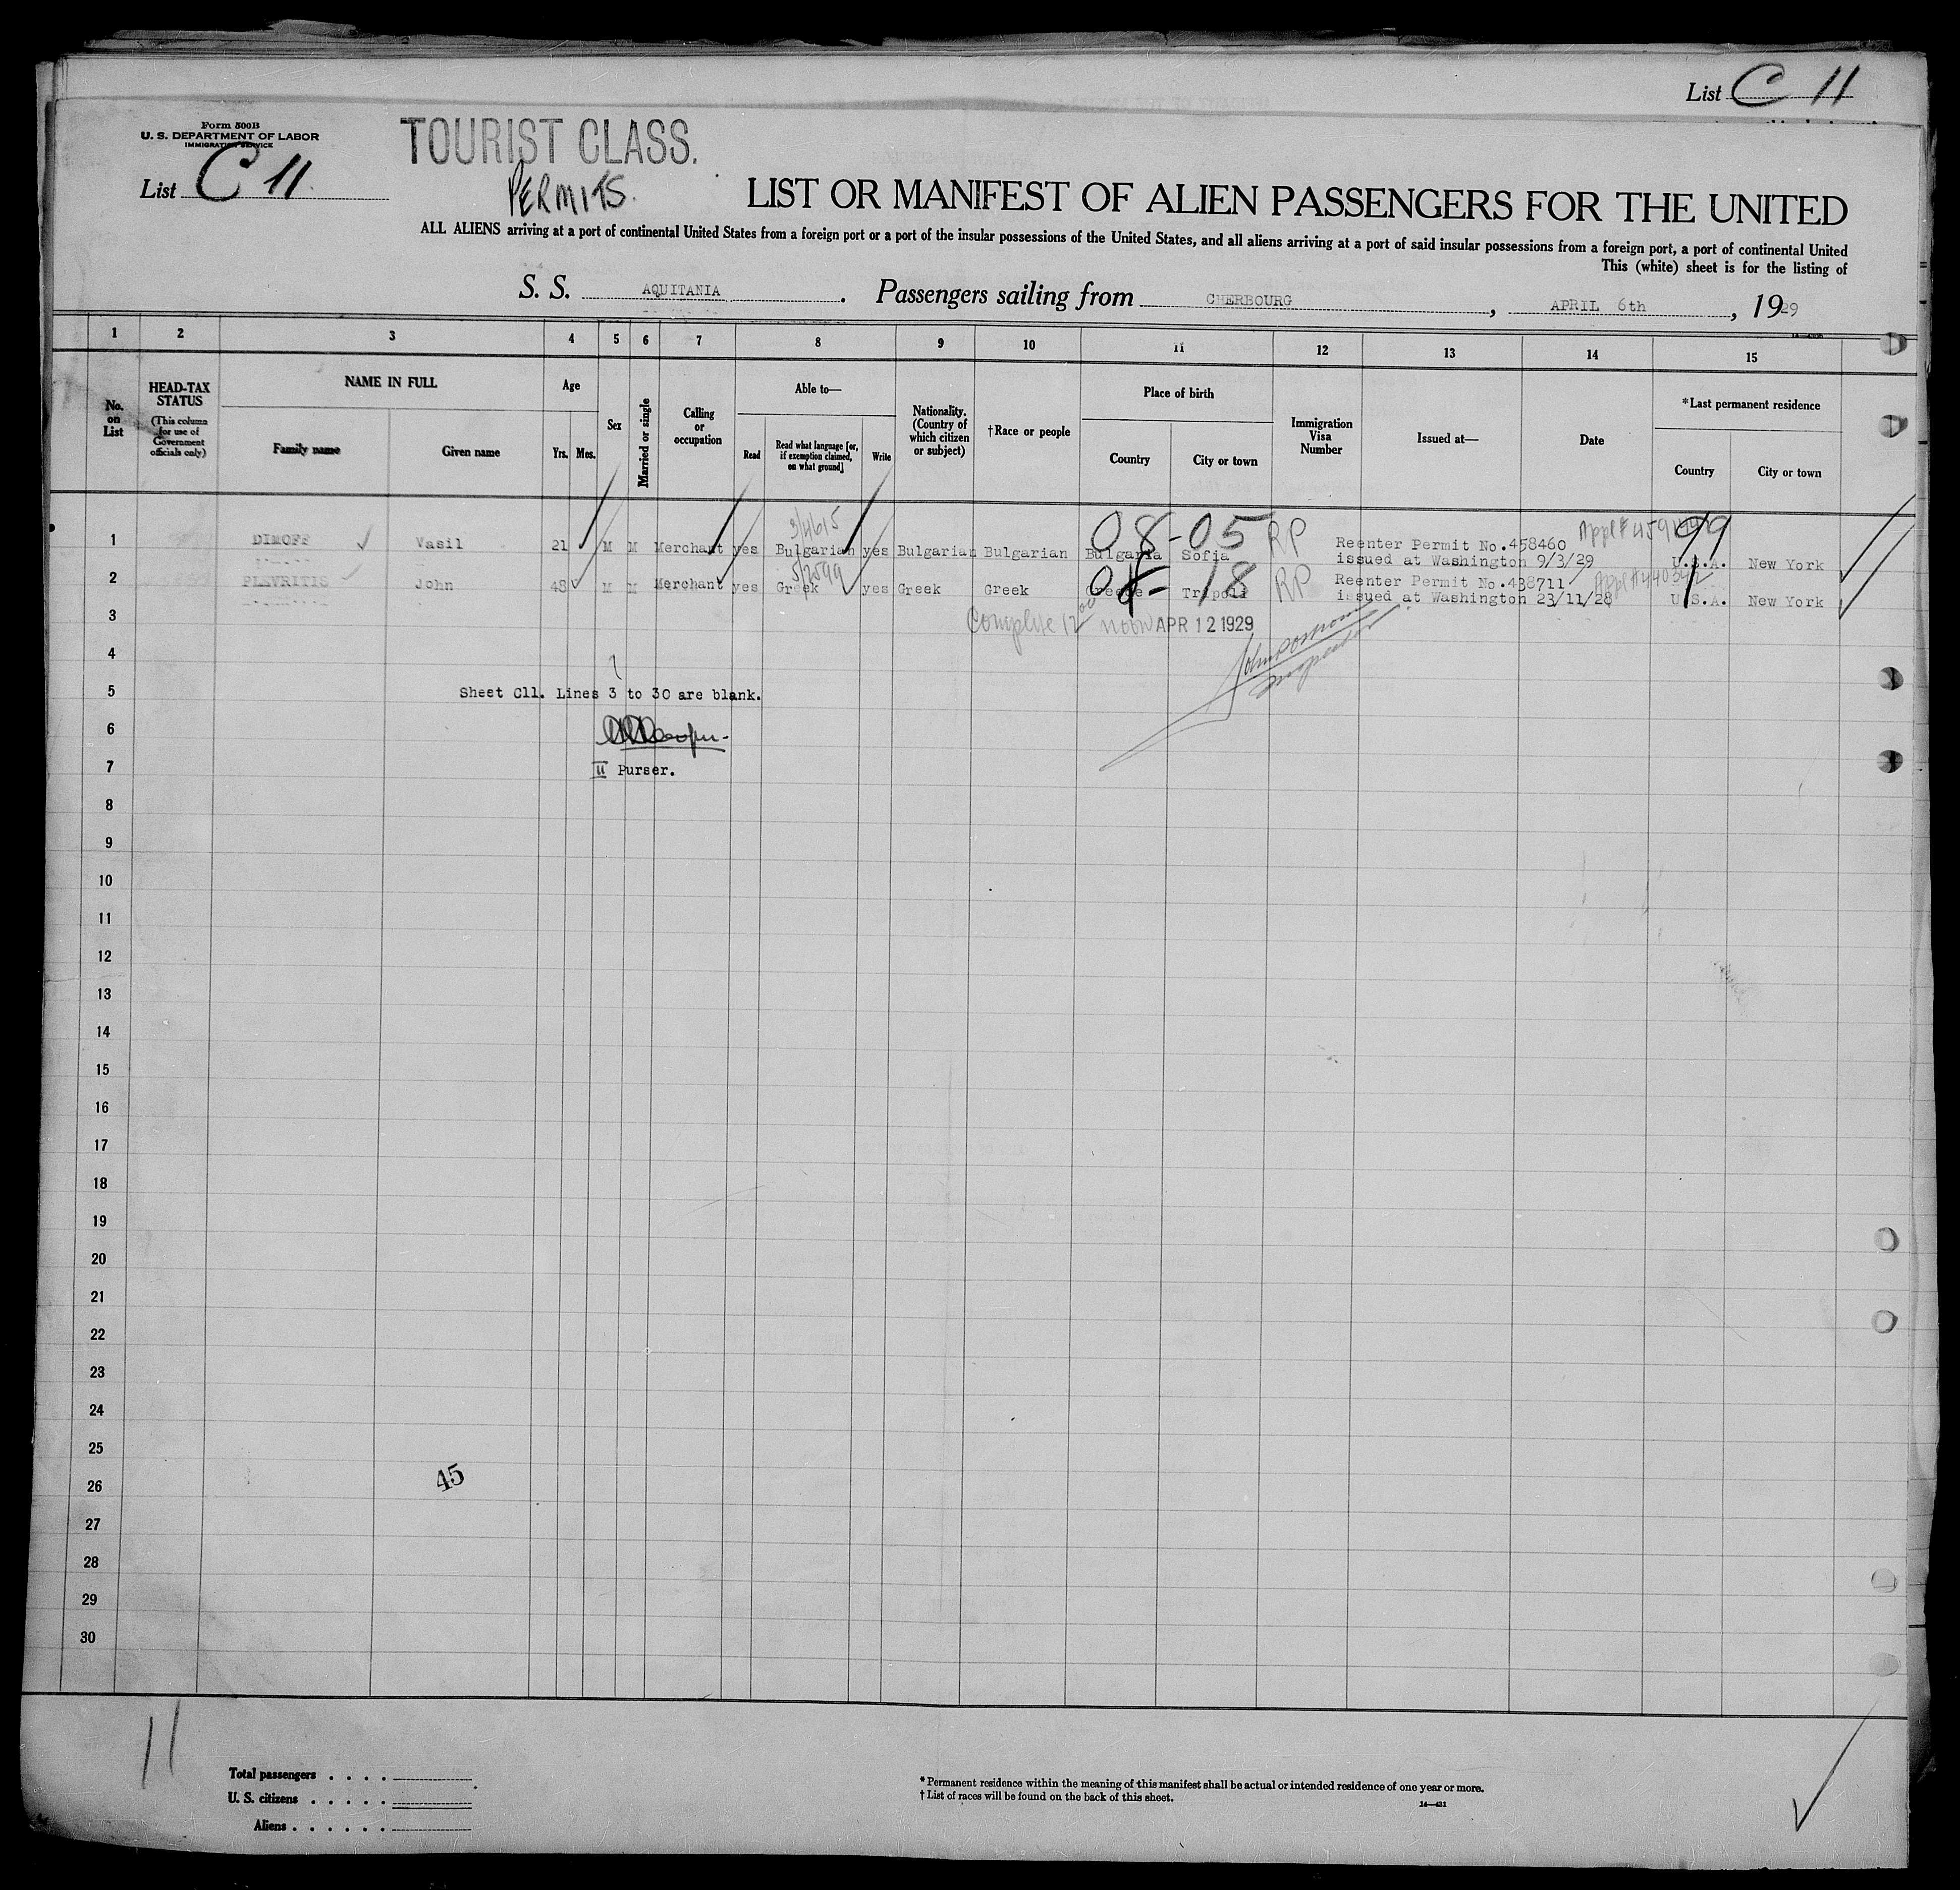 List C 11
Form 500B
U. S. DEPARTMENT OF LABOR
IMMIGRATION SERVICE
List C 11
TOURIST CLASS.
PERMITS.
LIST OR MANIFEST OF ALIEN PASSENGERS FOR THE UNITED
ALL ALIENS arriving at a port of continental United States from a foreign port or a port of the insular possessions of the United States, and all aliens arriving at a port of said insular possessions from a foreign port, a port of continental United
This (white) sheet is for the listing of
S. S. AQUITANIA. Passengers sailing from CHERBOURG, APRIL 6th, 1929
1 2 3 4 5 6 7 8 9 10 11 12 13 14 15
No. on List
HEAD-TAX STATUS
(This column for use of Government officials only)
NAME IN FULL
Family name
Given name
Age
Yrs. Mos.
Sex
Married or single
Calling or occupation
Able to—
Read
Read what language [or, if exemption claimed, on what ground]
Write
Nationality. (Country of which citizen or subject)
†Race or people
Place of birth
Country
City or town
Immigration Visa Number
Issued at—
Date
*Last permanent residence
Country
City or town
3/4615
08-05 RP
99
1 DIMOFF Vasil 21 M M Merchant yes Bulgarian yes Bulgarian Bulgarian Bulgaria Sofia Reenter Permit No.458460 issued at Washington 9/3/29 U.S.A. New York
5/2599
18 RP
2 PLEVRITIS John 48 M M Merchant yes Greek yes Greek Greek Greece Tripoli Reenter Permit No.438711 issued at Washington 23/11/28 U.S.A. New York
3 Complete 12 00 noon APR 12 1929
4
5 Sheet C11. Lines 3 to 30 are blank.
6
7 II Purser.
Inspector
8
9
10
11
12
13
14
15
16
17
18
19
20
21
22
23
24
25
26 45
27
28
29
30
11
Total passengers . . . .
U. S. citizens . . . . .
Aliens . . . . . .
* Permanent residence within the meaning of this manifest shall be actual or intended residence of one year or more.
† List of races will be found on the back of this sheet.
14—431